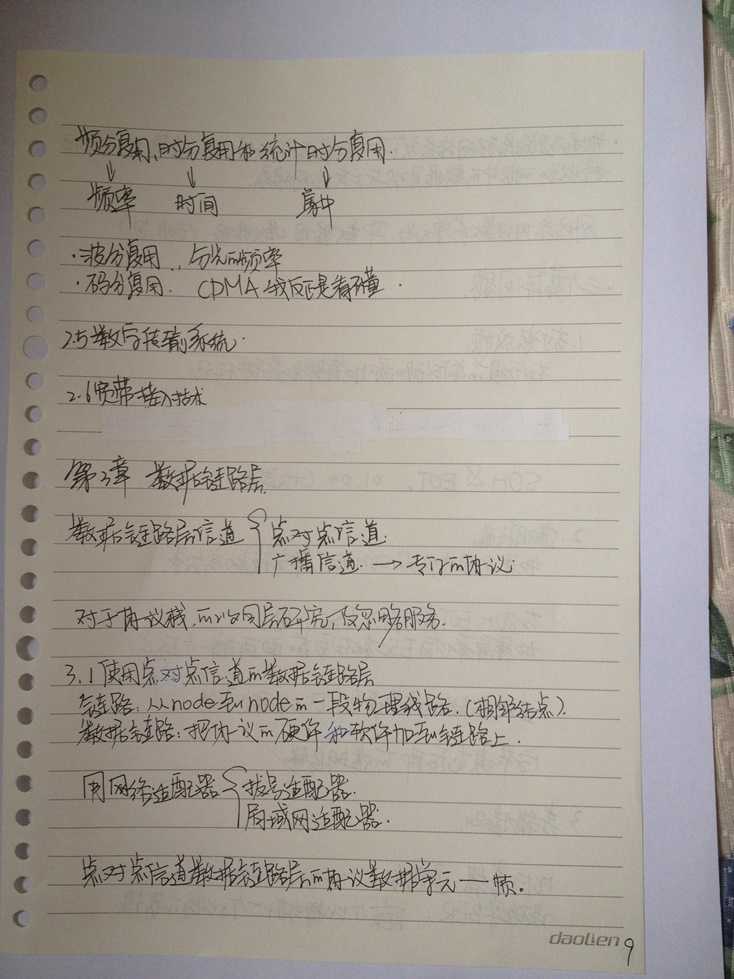 频分复用、时分复用和统计时分复用.
⇓ ⇓ ⇓
频率 时间 集中
·波分复用.. 分光的频率
·码分复用. CDMA 我反正是看不懂.
2.5 数字传输系统.
2.6 宽带接入技术
第3章 数据链路层.
数据链路层信道 { 点对点信道
广播信道. → 专门的协议.
对于协议栈, 可以同层研究, 忽略服务.
3.1 使用点对点信道的数据链路层
链路: 从node到node的一段物理线路. (相邻结点).
数据链路: 把协议的硬件和软件加到链路上.
用网络适配器 { 拨号适配器.
局域网适配器.
点对点信道数据链路层的协议数据单元——帧.
daolien 9